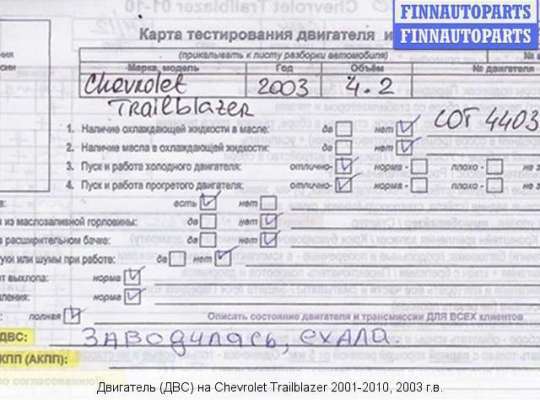 Chevrolet Trailblazer 01-10
FINNAUTOPARTS
FINNAUTOPARTS
Карта тестирования двигателя и
(прикалывать к листу разборки автомобиля)
№ а
Марка, модель Год Объём № двигателя
Chevrolet 2003 4.2
TRAILBLAZER
СОТ 4403
1. Наличие охлаждающей жидкости в масле: да нет
2. Наличие масла в охлаждающей жидкости: да нет
3. Пуск и работа холодного двигателя: отлично- норма - плохо - не з
4. Пуск и работа прогретого двигателя: отлично- норма - плохо - не з
есть нет
из маслозаливной горловины: да нет
в расширительном бачке: да нет
уки или шумы при работе: да нет
ет выхлопа: норма
ления: норма
полная Описать состояние двигателя и трансмиссии ДЛЯ ВСЕХ клиентов
ДВС: ЗАВОДИЛАСЬ, ЕХАЛА.
КПП (АКПП):
Двигатель (ДВС) на Chevrolet Trailblazer 2001-2010, 2003 г.в.